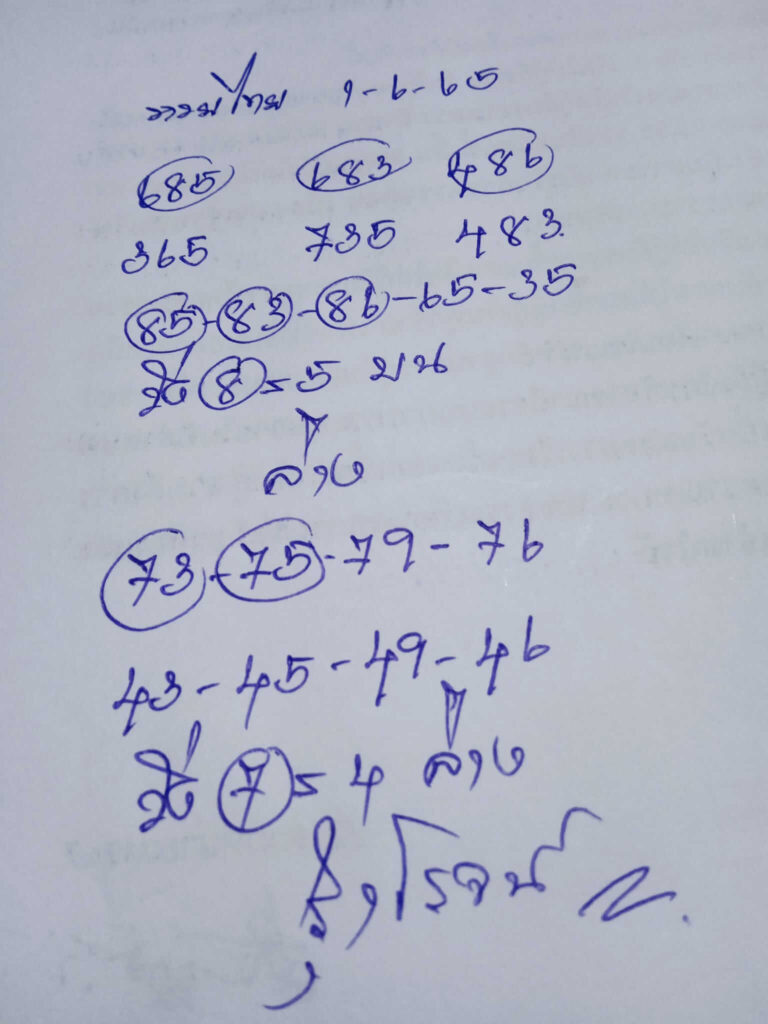 รวมไทย 1-6-65
685 683 486
365 735 483
85-83-86-65-35
วิ่ง 8=5 บน
ล่าง
73-75-79-76
43-45-49-46
วิ่ง 7=4 ล่าง